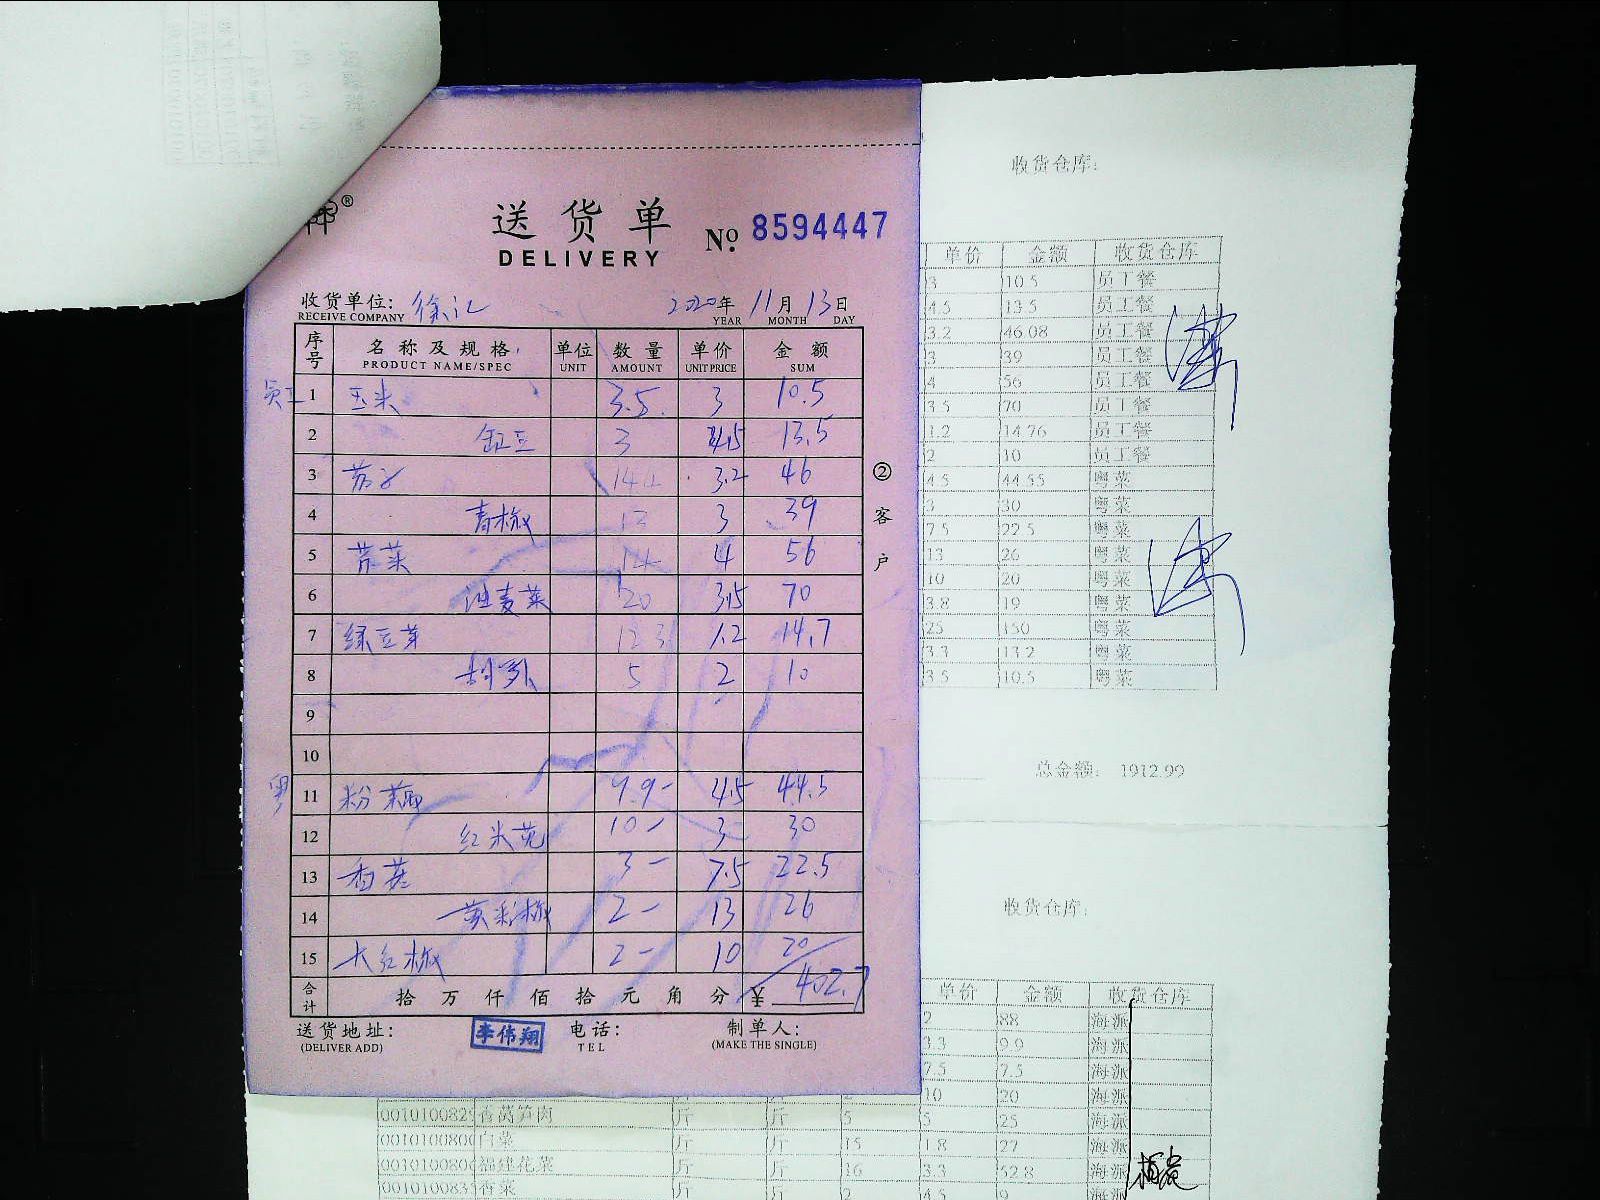 送货单
DELIVERY
No. 8594447
收货单位: 徐汇 2020年 11月 13日
RECEIVE COMPANY YEAR MONTH DAY
序号 名称及规格 单位 数量 单价 金额
PRODUCT NAME/SPEC UNIT AMOUNT UNIT PRICE SUM
员工 1 玉米 3.5 3 10.5
2 豇豆 3 4.5 13.5
3 茄子 14.4 3.2 46
4 青椒 13 3 39
5 芹菜 14 4 56
6 油麦菜 20 3.5 70
7 绿豆芽 12.3 1.2 14.7
8 5 2 10
9
10
粤 11 粉藕 9.9- 4.5 44.5
12 红米苋 10- 3 30
13 香菇 3- 7.5 22.5
14 黄彩椒 2- 13 26
15 大红椒 2- 10 20
合计 拾 万 仟 佰 拾 元 角 分 ¥ 402.7
送货地址: 李伟翔 电话: 制单人:
(DELIVER ADD) TEL (MAKE THE SINGLE)
②客户
收货仓库:
单价 金额 收货仓库
3 10.5 员工餐
4.5 13.5 员工餐
3.2 46.08 员工餐
3 39 员工餐
4 56 员工餐
3.5 70 员工餐
1.2 14.76 员工餐
2 10 员工餐
4.5 44.55 粤菜
3 30 粤菜
7.5 22.5 粤菜
13 26 粤菜
10 20 粤菜
3.8 19 粤菜
25 150 粤菜
3.3 13.2 粤菜
3.5 10.5 粤菜
总金额: 1912.99
收货仓库:
单价 金额 收货仓库
2 88 海派
3.3 9.9 海派
7.5 7.5 海派
10 20 海派
001010082 香莴笋肉 斤 斤 5 5 25 海派
001010080 白菜 斤 斤 15 1.8 27 海派
001010080 福建花菜 斤 斤 16 3.3 52.8 海派
001010083 香菜 斤 斤 2 4.5 9 海派